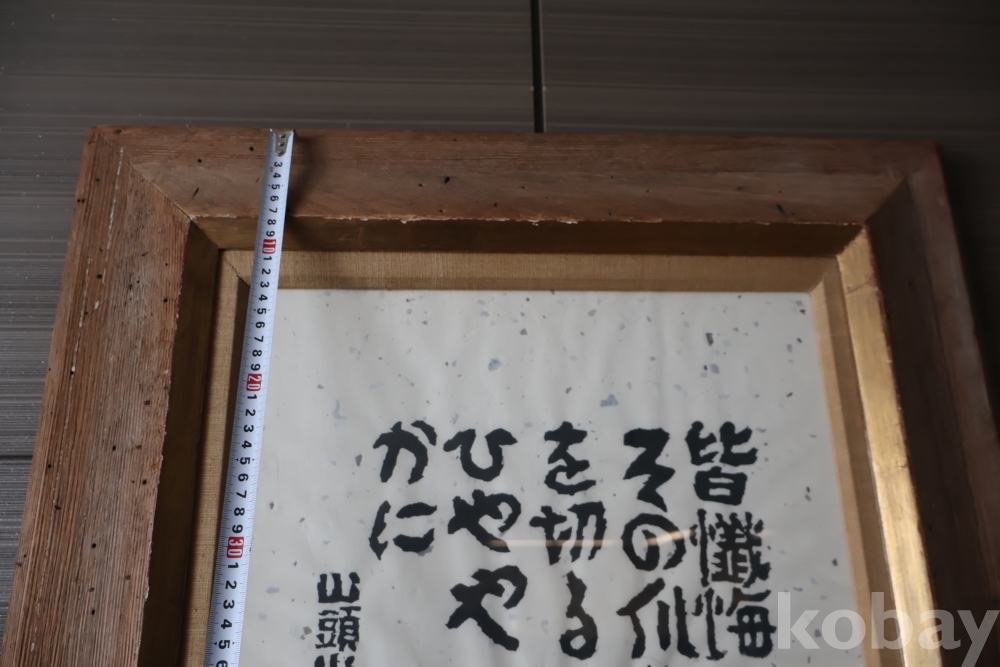 皆懺悔
その爪
を切る
ひやや
かに
山頭
3 4 5 6 7 8 9 10 1 2 3 4 5 6 7 8 9 20 1 2 3 4 5 6 7 8 9 30 1 2 3 4 5 6
kobay